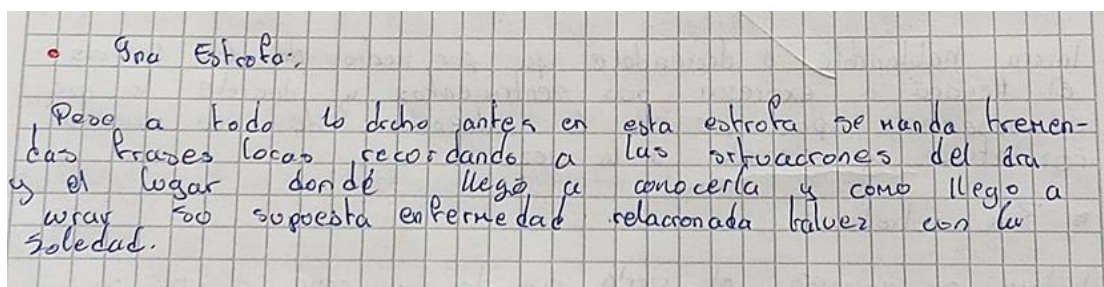 • 9na Estrofa:
Pese a todo lo dicho antes en esta estrofa se manda tremen-
das frases locas, recordando a las situaciones del dia
y el lugar donde llegó a conocerla y como llego a
curar su supuesta enfermedad relacionada talvez con la
soledad.